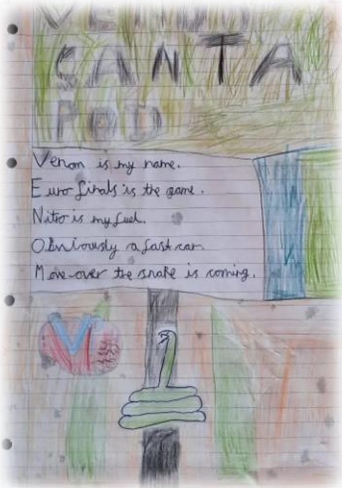 VENOM
SANTA
POD
Venom is my name.
Euro finals is the game.
Nitro is my fuel.
Obviously a fast car.
Move over the snake is coming.